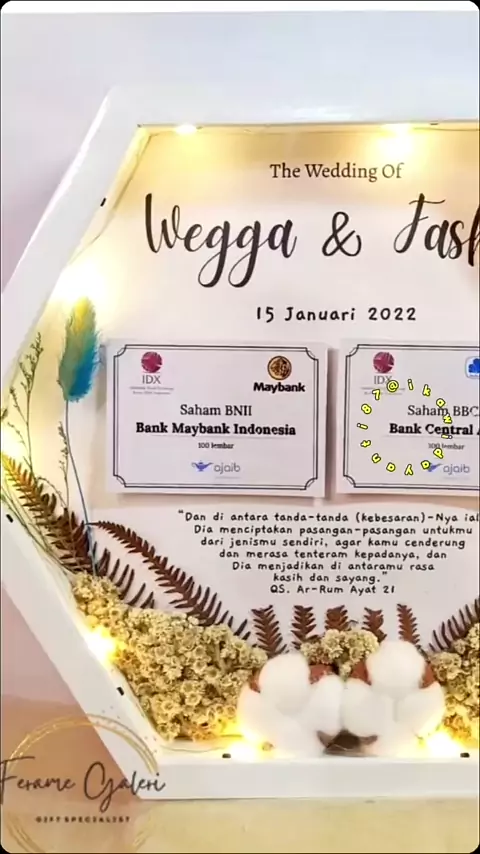 The Wedding Of
Wegga & Fas
15 Januari 2022
IDX
Maybank
Saham BNII
Bank Maybank Indonesia
100 lembar
ajaib
IDX
Saham BBC
Bank Central A
100 lembar
ajaib
"Dan di antara tanda-tanda (kebesaran)-Nya ial
Dia menciptakan pasangan-pasangan untukmu
dari jenismu sendiri, agar kamu cenderung
dan merasa tenteram kepadanya, dan
Dia menjadikan di antaramu rasa
kasih dan sayang."
QS. Ar-Rum Ayat 21
Ferame Galeri
GIFT SPECIALIST